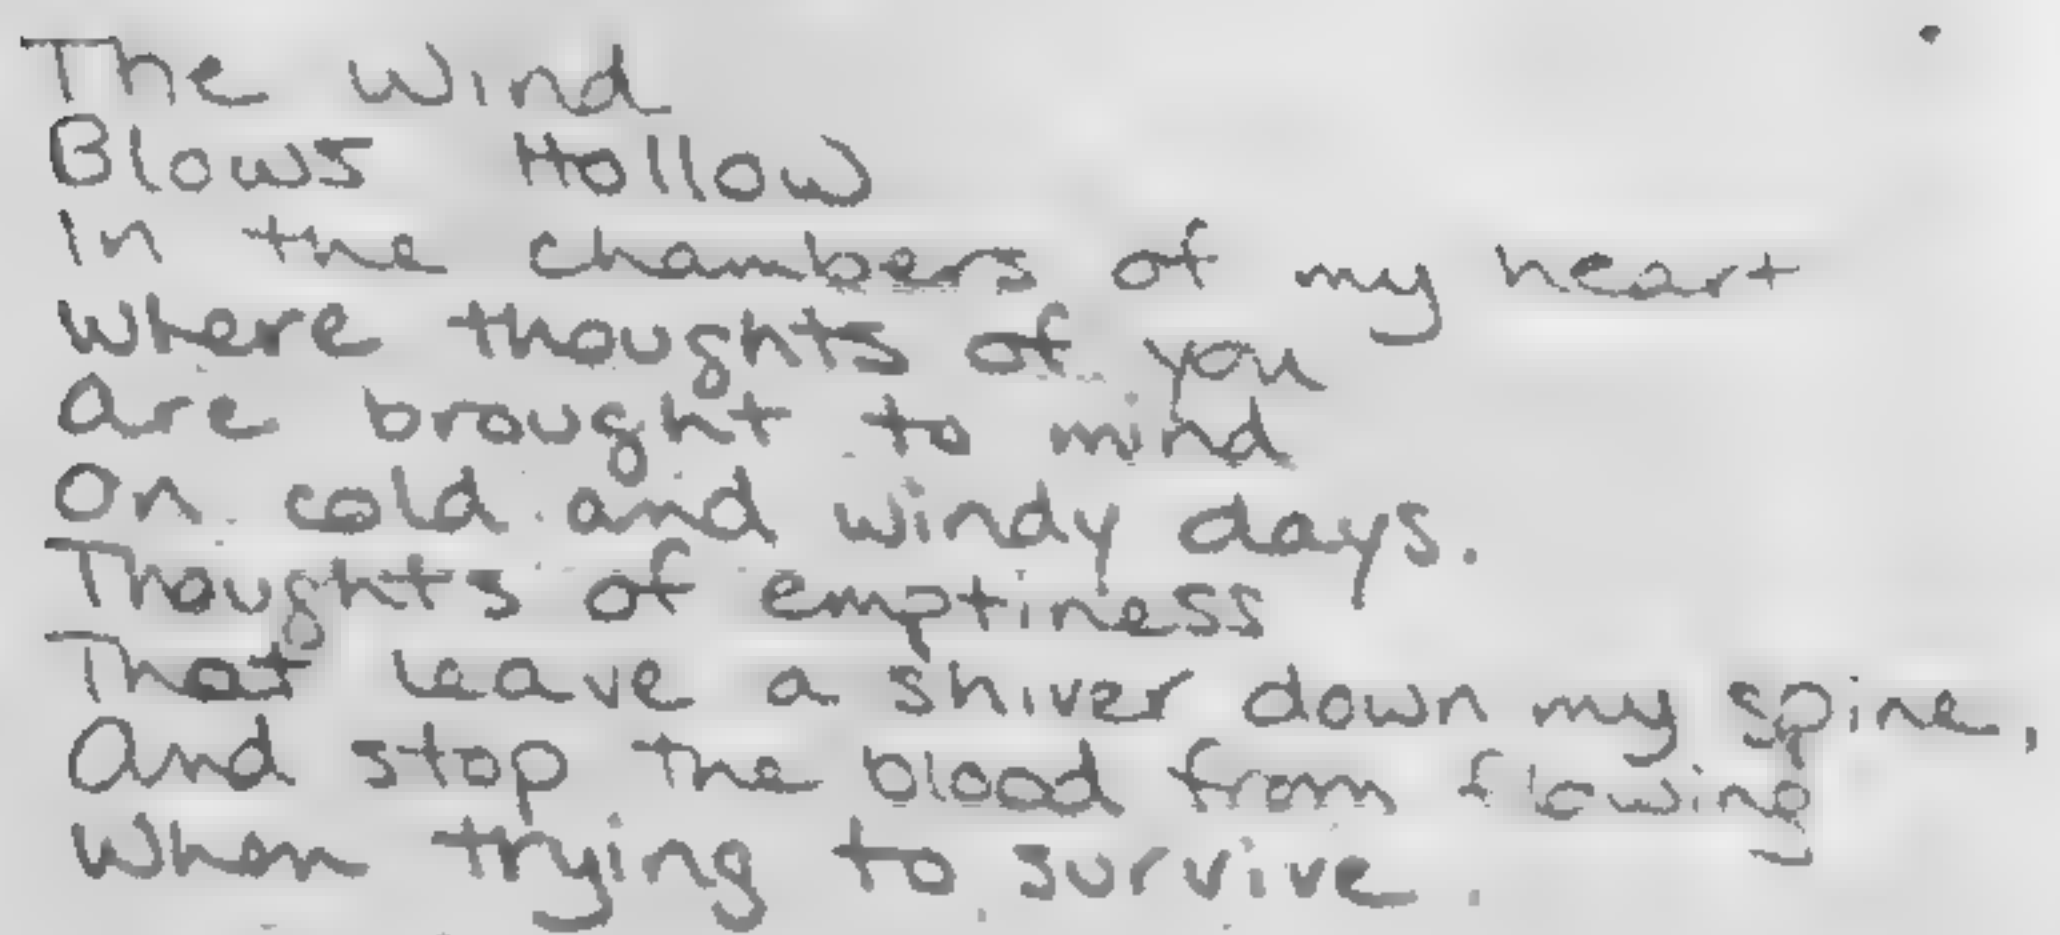 The Wind
Blows Hollow
In the chambers of my heart
where thoughts of you
are brought to mind
On cold and windy days.
Thoughts of emptiness
That leave a shiver down my spine,
And stop the blood from flowing
When trying to survive.